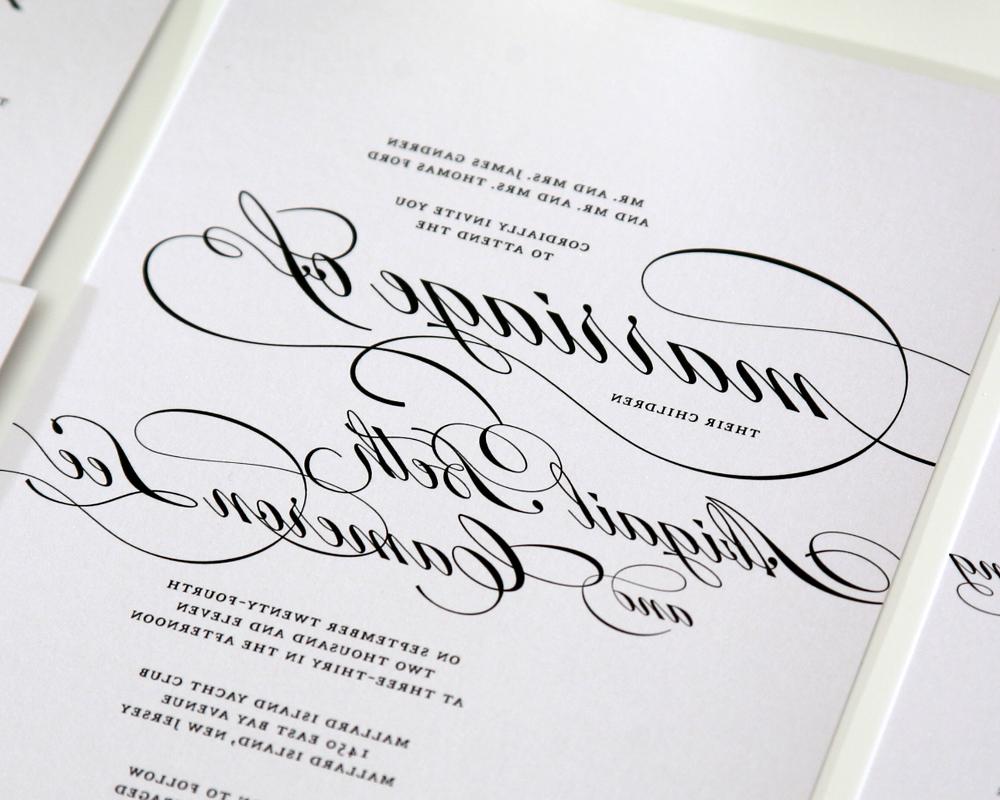 MR. AND MRS. JAMES GANDREN
AND MR. AND MRS. THOMAS FORD
CORDIALLY INVITE YOU
TO ATTEND THE
marriage of
THEIR CHILDREN
Abigail Beth
and Cameron Lee
ON SEPTEMBER TWENTY-FOURTH
TWO THOUSAND AND ELEVEN
AT THREE-THIRY IN THE AFTERNOON
MALLARD ISLAND YACHT CLUB
1450 EAST BAY AVENUE
MALLARD ISLAND, NEW JERSEY
TO FOLLOW